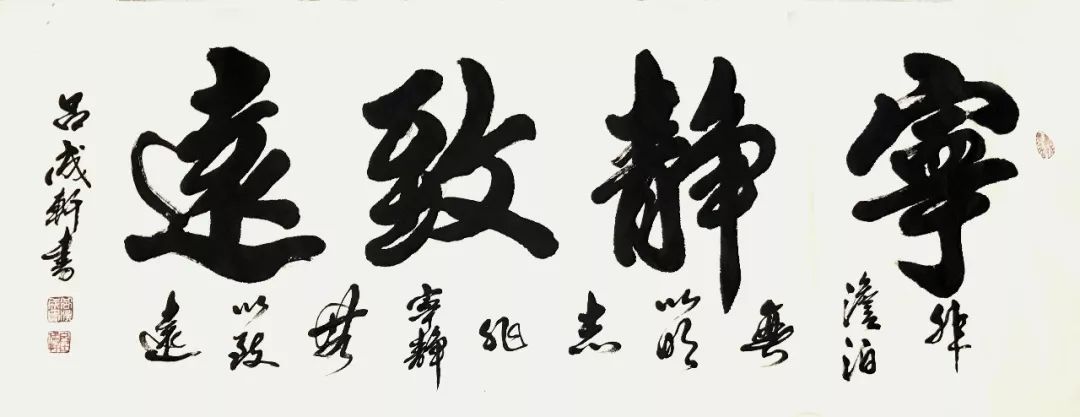 寧静致遠
非澹泊無以明志非寧静無以致遠
吕成軒書